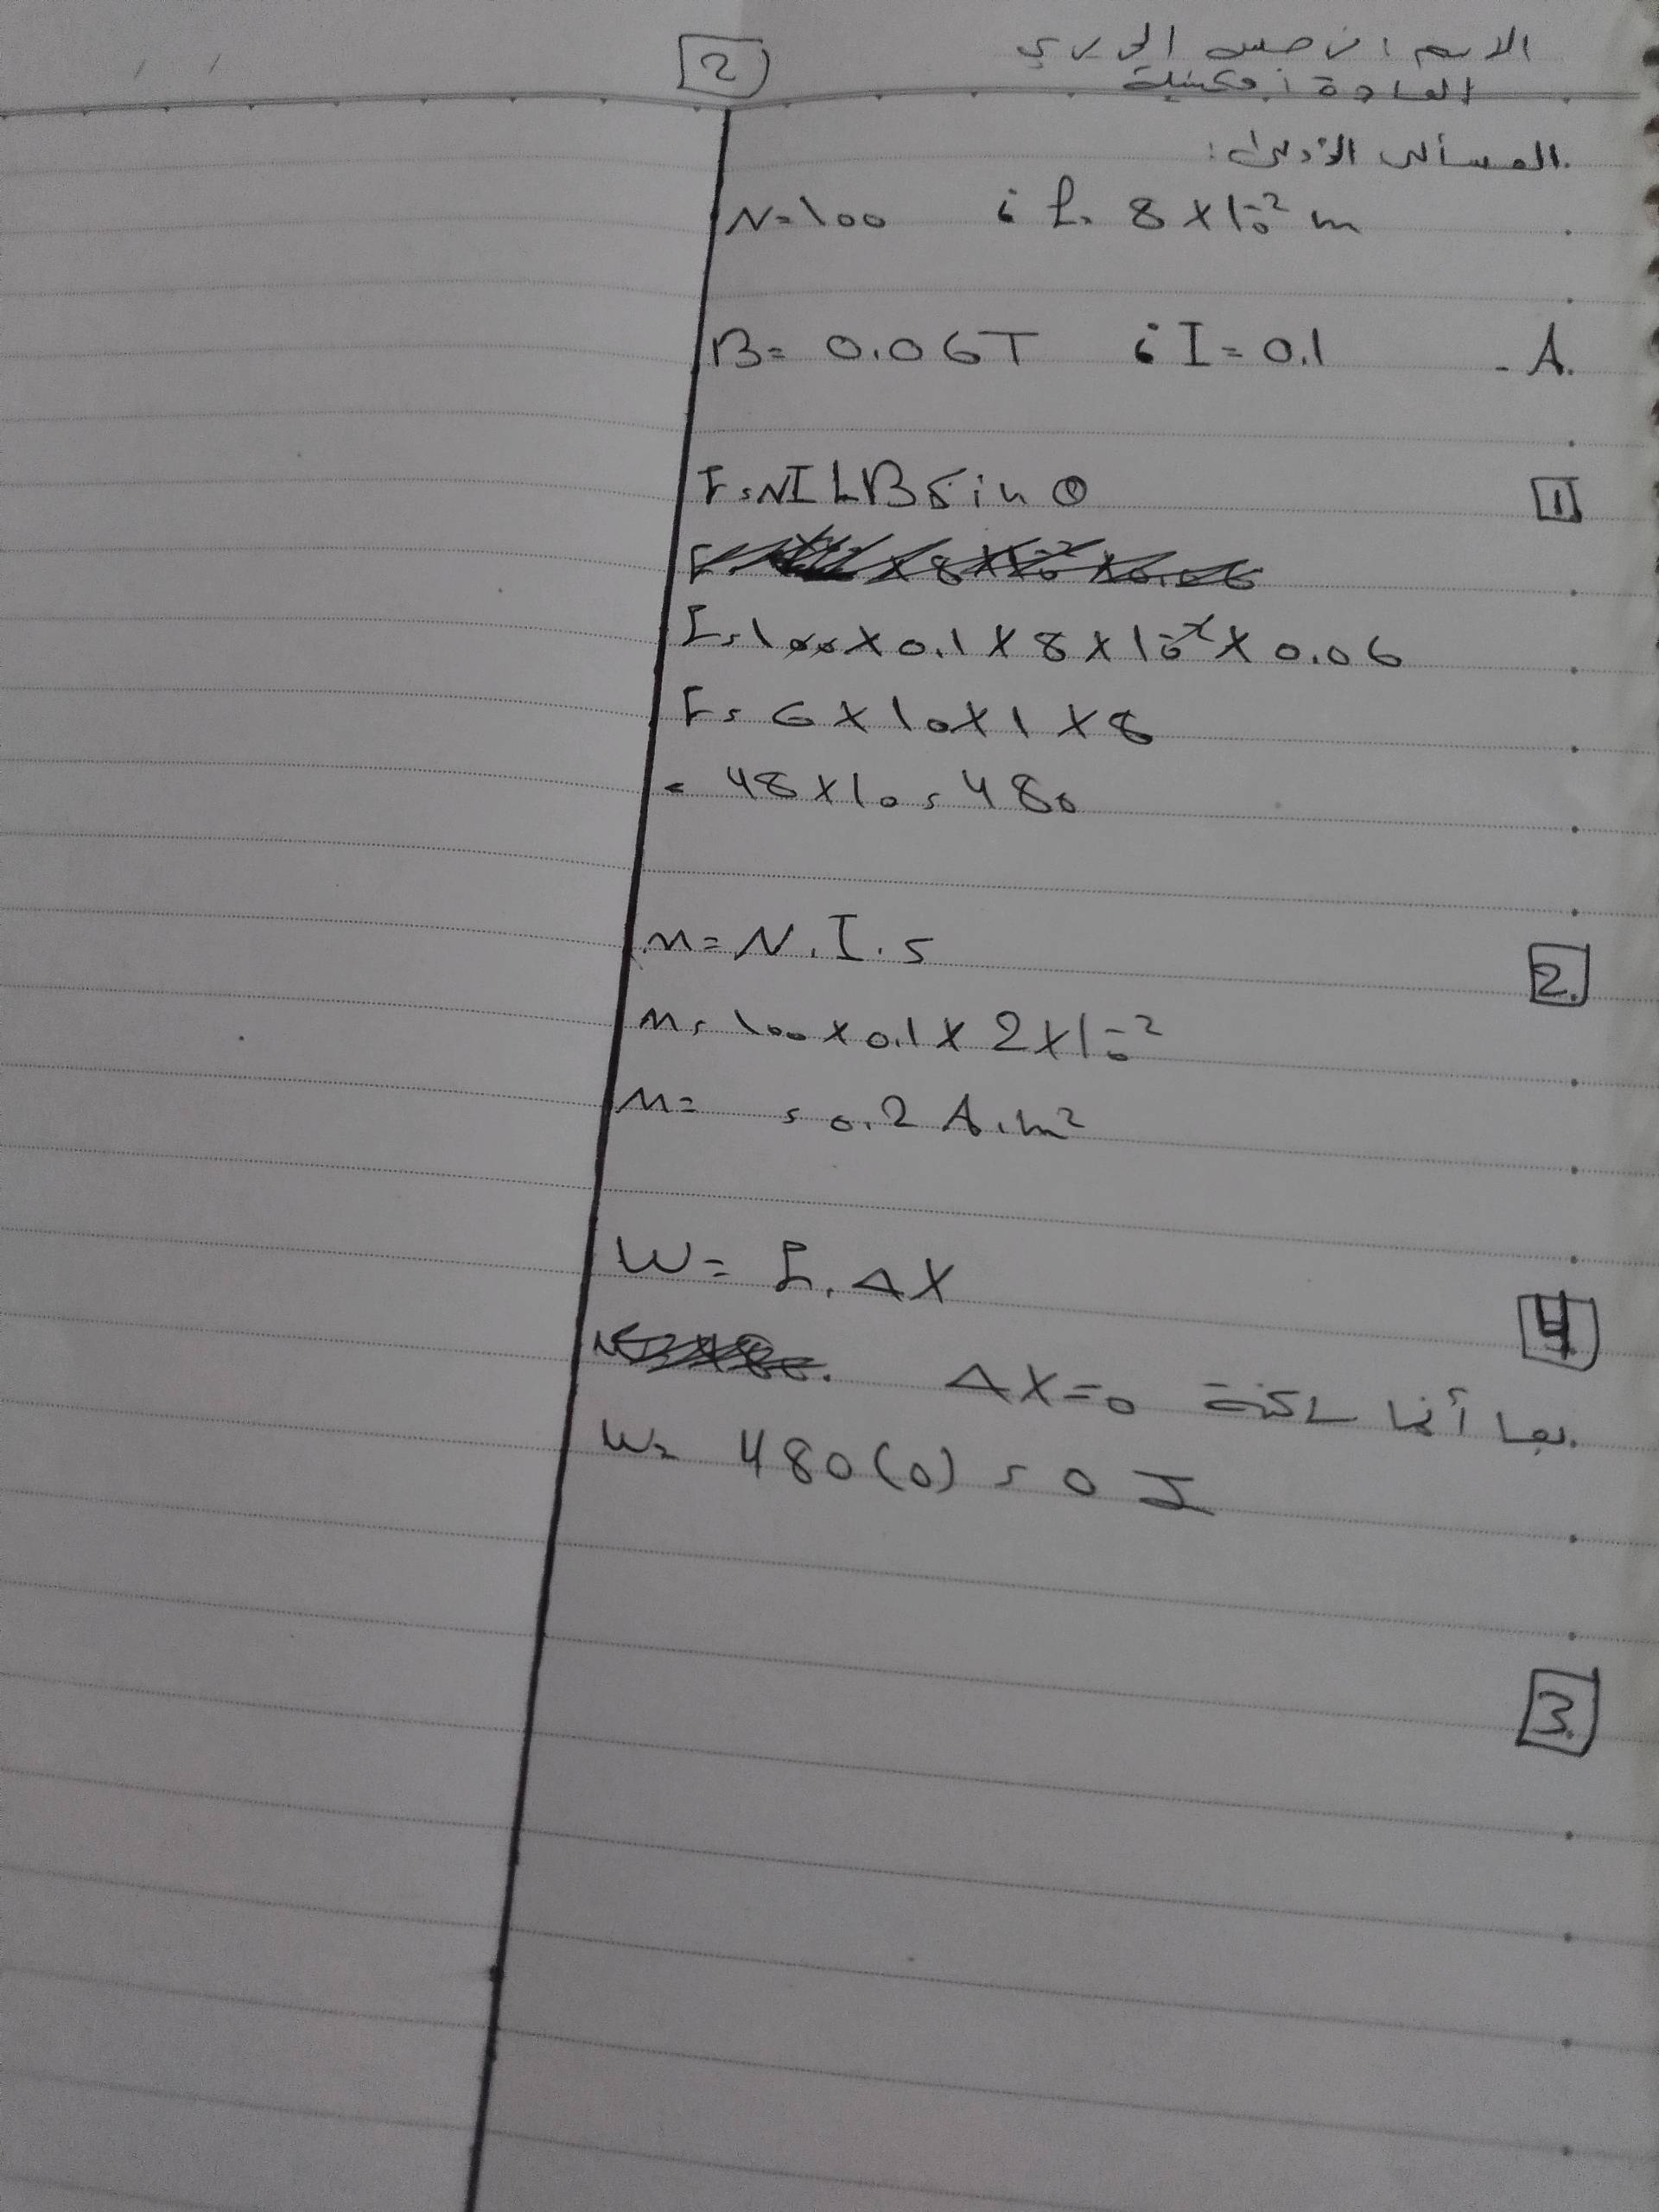 2
الاسم: نرجس الحريري
المادة: فيزياء
المسألة الأولى:
N=100 ، L= 8 × 10⁻² m
B= 0.06T ، I= 0.1 A.
1 F=NILB sin θ
F=100×0.1×8×10⁻²×0.06
F= 6×10×1×8
= 48×10=480
2. m=N.I.s
m=100×0.1×2×10⁻²
m= =0.2 A.m²
4 W=F.ΔX
بما أنها ساكنة ΔX=0
W= 480(0)=0 J
3.